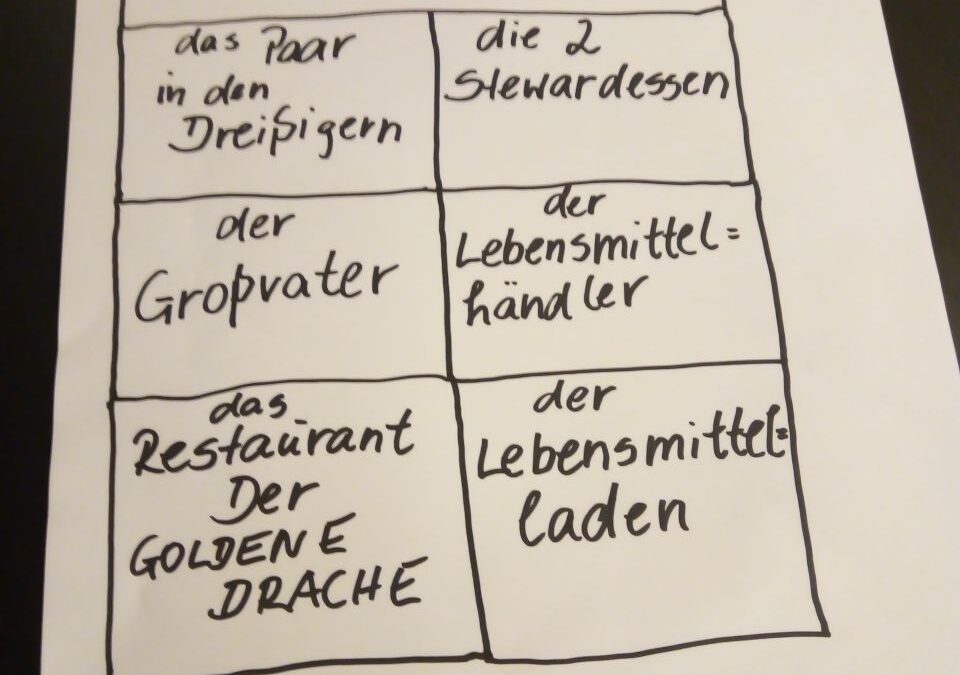 das Paar
in den
Dreißigern
die 2
Stewardessen
der
Großvater
der
Lebensmittel=
händler
das
Restaurant
Der
GOLDENE
DRACHE
der
Lebensmittel=
laden